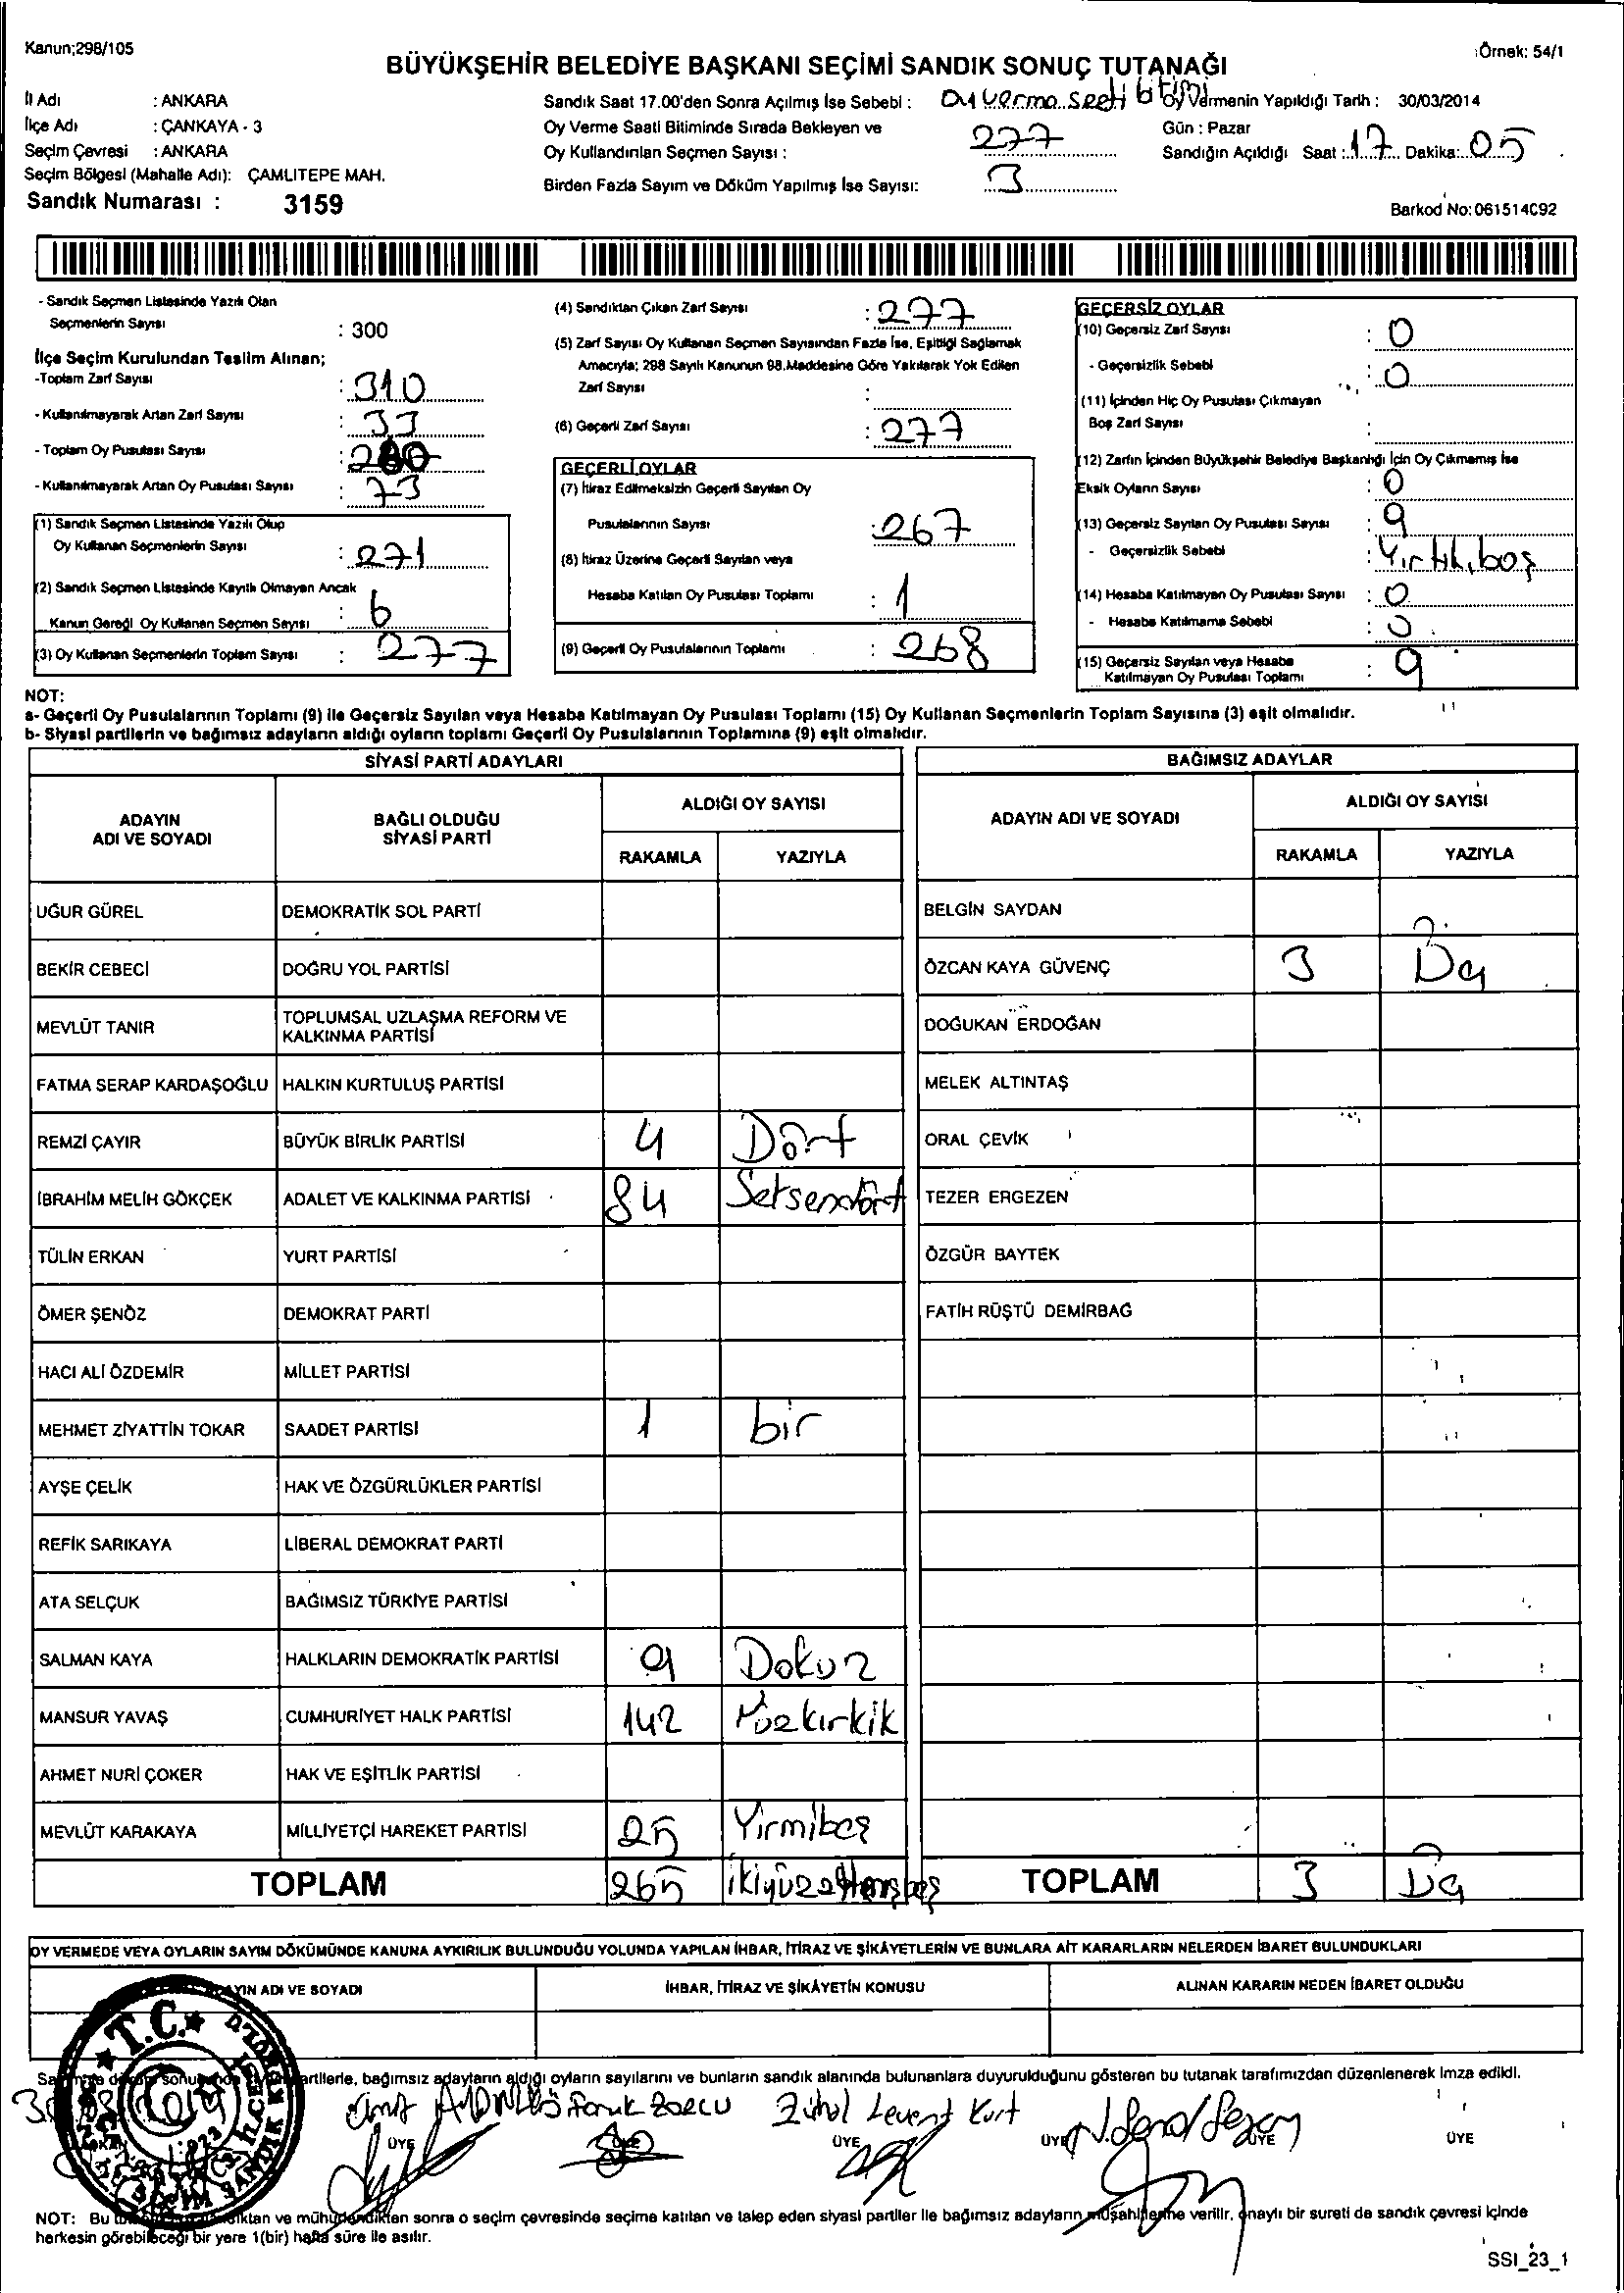 Kanun;298/105
Örnek: 54/1
BÜYÜKŞEHİR BELEDİYE BAŞKANI SEÇİMİ SANDIK SONUÇ TUTANAĞI
İl Adı : ANKARA
İlçe Adı : ÇANKAYA - 3
Seçim Çevresi : ANKARA
Seçim Bölgesi (Mahalle Adı): ÇAMLITEPE MAH.
Sandık Numarası : 3159
Sandık Saat 17.00'den Sonra Açılmış İse Sebebi : Oy verme saati bitimi
Oy Verme Saati Bitiminde Sırada Bekleyen ve
Oy Kullandırılan Seçmen Sayısı : 277
Birden Fazla Sayım ve Döküm Yapılmış İse Sayısı: 3
Oy Vermenin Yapıldığı Tarih : 30/03/2014
Gün : Pazar
Sandığın Açıldığı Saat : 17 Dakika: 05
Barkod No: 061514092
- Sandık Seçmen Listesinde Yazılı Olan
Seçmenlerin Sayısı : 300
İlçe Seçim Kurulundan Teslim Alınan;
-Toplam Zarf Sayısı : 310
- Kullanılmayarak Artan Zarf Sayısı : 33
- Toplam Oy Pusulası Sayısı :
- Kullanılmayarak Artan Oy Pusulası Sayısı : 73
(1) Sandık Seçmen Listesinde Yazılı Olup
Oy Kullanan Seçmenlerin Sayısı : 271
(2) Sandık Seçmen Listesinde Kayıtlı Olmayan Ancak
Kanun Gereği Oy Kullanan Seçmen Sayısı : 6
(3) Oy Kullanan Seçmenlerin Toplam Sayısı : 277
(4) Sandıktan Çıkan Zarf Sayısı : 277
(5) Zarf Sayısı Oy Kullanan Seçmen Sayısından Fazla İse, Eşitliği Sağlamak
Amacıyla; 298 Sayılı Kanunun 98.Maddesine Göre Yakılarak Yok Edilen
Zarf Sayısı :
(6) Geçerli Zarf Sayısı : 277
GEÇERLİ OYLAR
(7) İtiraz Edilmeksizin Geçerli Sayılan Oy
Pusulalarının Sayısı : 267
(8) İtiraz Üzerine Geçerli Sayılan veya
Hesaba Katılan Oy Pusulası Toplamı : 1
(9) Geçerli Oy Pusulalarının Toplamı : 268
GEÇERSİZ OYLAR
(10) Geçersiz Zarf Sayısı : 0
- Geçersizlik Sebebi : 0
(11) İçinden Hiç Oy Pusulası Çıkmayan
Boş Zarf Sayısı :
(12) Zarfın İçinden Büyükşehir Belediye Başkanlığı İçin Oy Çıkmamış İse
Eksik Oyların Sayısı : 0
(13) Geçersiz Sayılan Oy Pusulası Sayısı : 9
- Geçersizlik Sebebi : Yırtık, boş
(14) Hesaba Katılmayan Oy Pusulası Sayısı : 0
- Hesaba Katılmama Sebebi : 0
(15) Geçersiz Sayılan veya Hesaba
Katılmayan Oy Pusulası Toplamı : 9
NOT:
a- Geçerli Oy Pusulalarının Toplamı (9) ile Geçersiz Sayılan veya Hesaba Katılmayan Oy Pusulası Toplamı (15) Oy Kullanan Seçmenlerin Toplam Sayısına (3) eşit olmalıdır.
b- Siyasi partilerin ve bağımsız adayların aldığı oyların toplamı Geçerli Oy Pusulalarının Toplamına (9) eşit olmalıdır.
SİYASİ PARTİ ADAYLARI
ADAYIN ADI VE SOYADI
BAĞLI OLDUĞU SİYASİ PARTİ
ALDIĞI OY SAYISI
RAKAMLA YAZIYLA
UĞUR GÜREL DEMOKRATİK SOL PARTİ
BEKİR CEBECİ DOĞRU YOL PARTİSİ
MEVLÜT TANIR TOPLUMSAL UZLAŞMA REFORM VE
KALKINMA PARTİSİ
FATMA SERAP KARDAŞOĞLU HALKIN KURTULUŞ PARTİSİ
REMZİ ÇAYIR BÜYÜK BİRLİK PARTİSİ 4 Dört
İBRAHİM MELİH GÖKÇEK ADALET VE KALKINMA PARTİSİ 84 Seksendört
TÜLİN ERKAN YURT PARTİSİ
ÖMER ŞENÖZ DEMOKRAT PARTİ
HACI ALİ ÖZDEMİR MİLLET PARTİSİ
MEHMET ZİYATTİN TOKAR SAADET PARTİSİ 1 bir
AYŞE ÇELİK HAK VE ÖZGÜRLÜKLER PARTİSİ
REFİK SARIKAYA LİBERAL DEMOKRAT PARTİ
ATA SELÇUK BAĞIMSIZ TÜRKİYE PARTİSİ
SALMAN KAYA HALKLARIN DEMOKRATİK PARTİSİ 9 Dokuz
MANSUR YAVAŞ CUMHURİYET HALK PARTİSİ 142 Yüzkırkik
AHMET NURİ ÇOKER HAK VE EŞİTLİK PARTİSİ
MEVLÜT KARAKAYA MİLLİYETÇİ HAREKET PARTİSİ 25 Yirmibeş
TOPLAM 265 ikiyüzatmışbeş
BAĞIMSIZ ADAYLAR
ADAYIN ADI VE SOYADI
ALDIĞI OY SAYISI
RAKAMLA YAZIYLA
BELGİN SAYDAN
ÖZCAN KAYA GÜVENÇ 3
DOĞUKAN ERDOĞAN
MELEK ALTINTAŞ
ORAL ÇEVİK
TEZER ERGEZEN
ÖZGÜR BAYTEK
FATİH RÜŞTÜ DEMİRBAĞ
TOPLAM 3
OY VERMEDE VEYA OYLARIN SAYIM DÖKÜMÜNDE KANUNA AYKIRILIK BULUNDUĞU YOLUNDA YAPILAN İHBAR, İTİRAZ VE ŞİKÂYETLERİN VE BUNLARA AİT KARARLARIN NELERDEN İBARET BULUNDUKLARI
ADI VE SOYADI
İHBAR, İTİRAZ VE ŞİKÂYETİN KONUSU
ALINAN KARARIN NEDEN İBARET OLDUĞU
T.C.
bağımsız adayların aldığı oyların sayılarını ve bunların sandık alanında bulunanlara duyurulduğunu gösteren bu tutanak tarafımızdan düzenlenerek imza edildi.
Faruk Zühal Levent Kurt
ÜYE ÜYE ÜYE ÜYE ÜYE
NOT: Bu ve mühürlendikten sonra o seçim çevresinde seçime katılan ve talep eden siyasi partiler ile bağımsız adayların müşahitlerine verilir, onaylı bir sureti de sandık çevresi içinde
herkesin görebileceği bir yere 1(bir) hafta süre ile asılır.
SSI_23_1